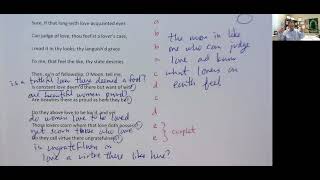 Sure, if that long with love-acquainted eyes a
Can judge of love, thou feel'st a lover's case, b
I read it in thy looks; thy languish'd grace b
To me, that feel the like, thy state descries. a
the moon is like
one who can judge
love and know
what lovers on
earth feel
Then, ev'n of fellowship, O Moon, tell me, c
is a faithful love there deemed a fool?
Is constant love deem'd there but want of wit? d
are beautiful women proud?
Are beauties there as proud as here they be? c
do women love to be loved
Do they above love to be lov'd, and yet d
but scorn those who love
Those lovers scorn whom that love doth possess? e
Do they call virtue there ungratefulness? e
couplet
is ungratefulness in
love a virtue there like here?